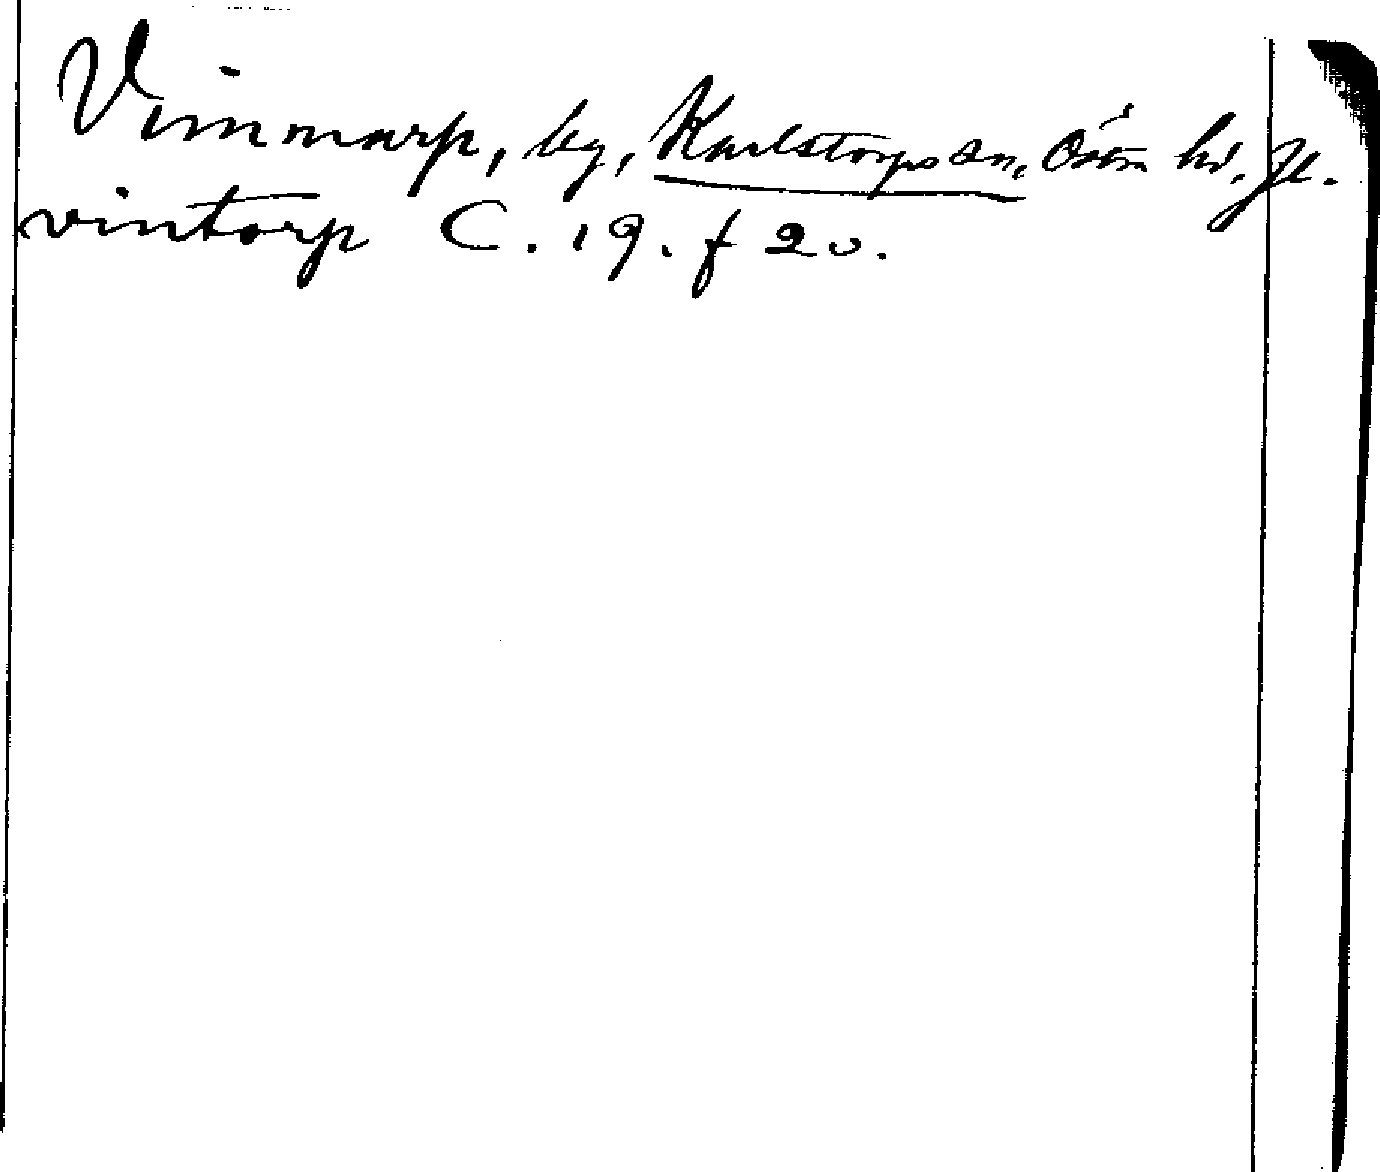 Vimmarp, by, Karlstorps sn, Östra hd, Jl.
vintorp C. 19. f 20.